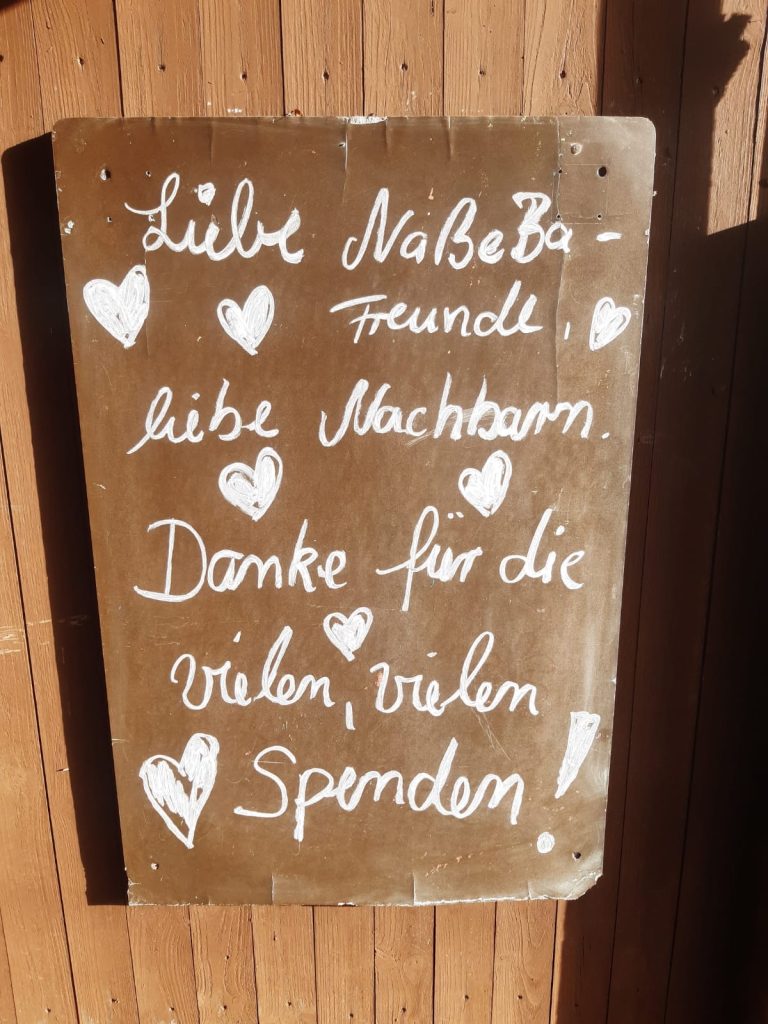 Liebe NaßeBa-
Freunde,
liebe Nachbarn.
Danke für die
vielen, vielen
Spenden!